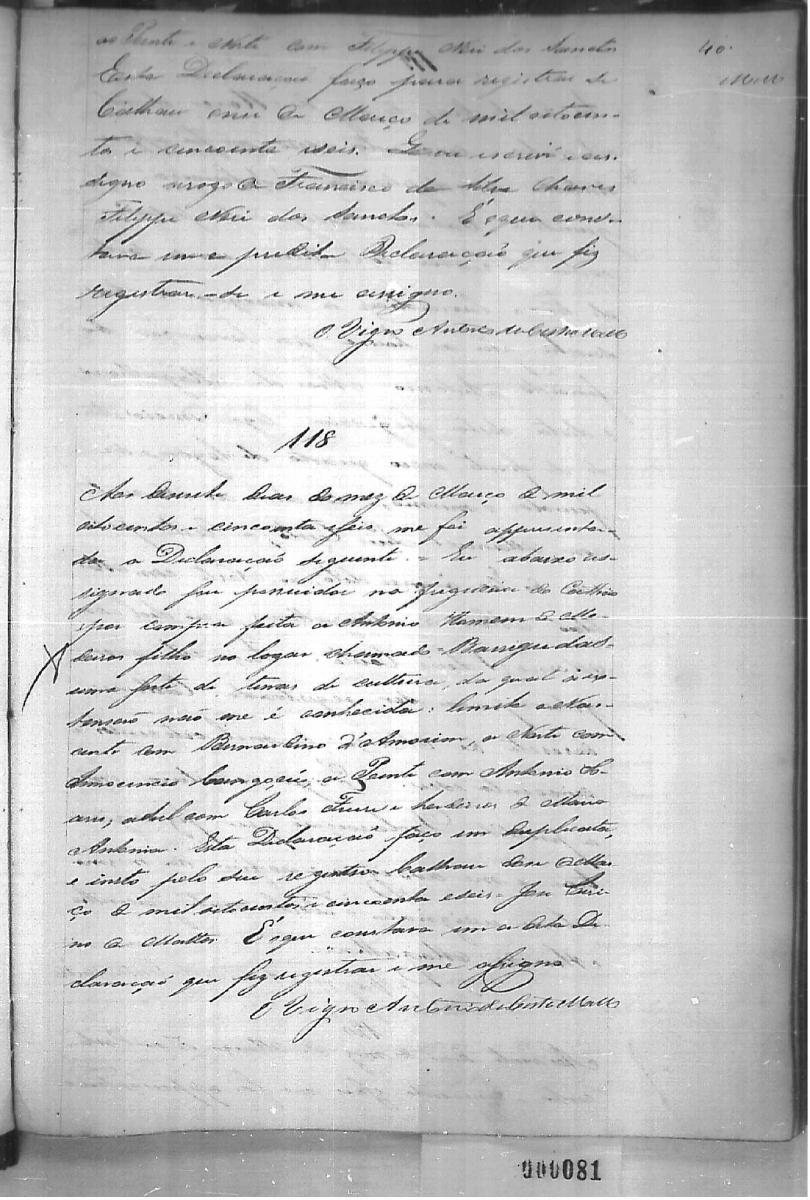 ao Poente e Norte com Filippe Neri dos Sanctos
Esta Declaração faço para registrar-se
Cathau onze de Março de mil oitocen-
tos e cincoenta e seis. Eu escrevi e as-
signo arogo de Francisco da Silva Chaves
Filippe Neri dos Sanctos. É o que cons-
tava em a predita Declaração que fiz
registrar-se e me assigno.
O Vigro Antonio da Costa Mattos
40
118
Aos dias do mez de Março de mil
oitocentos e cincoenta e seis, me foi appresenta-
da a Declaração seguinte. = Eu abaixo as-
signado sou possuidor na freguezia do
por compra feita a Antonio Homem de Me-
filho no logar chamado - Barrigudas -
uma sorte de terras de cultura, da qual a ex-
tensão não me é conhecida: limita ao Nas-
cente com Bernardino d'Amorim, ao Norte com
Innocencio ao Poente com Antonio
ao Sul com Carlos Freire e herdeiros de Maria
Antonia. Esta Declaração faço em duplicata,
e insto pelo seu registro Cathau de Mar-
ço de mil oitocentos e cincoenta e seis. José
de Mattos. É o que constava em a dita De-
claração que fiz registrar e me assigno
O Vigro Antonio da Costa Mattos
000081